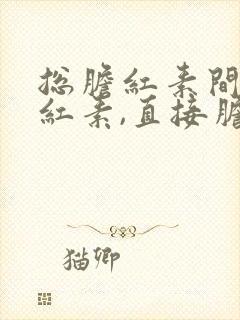 总膽紅素間
紅素,直接膽
猫卿